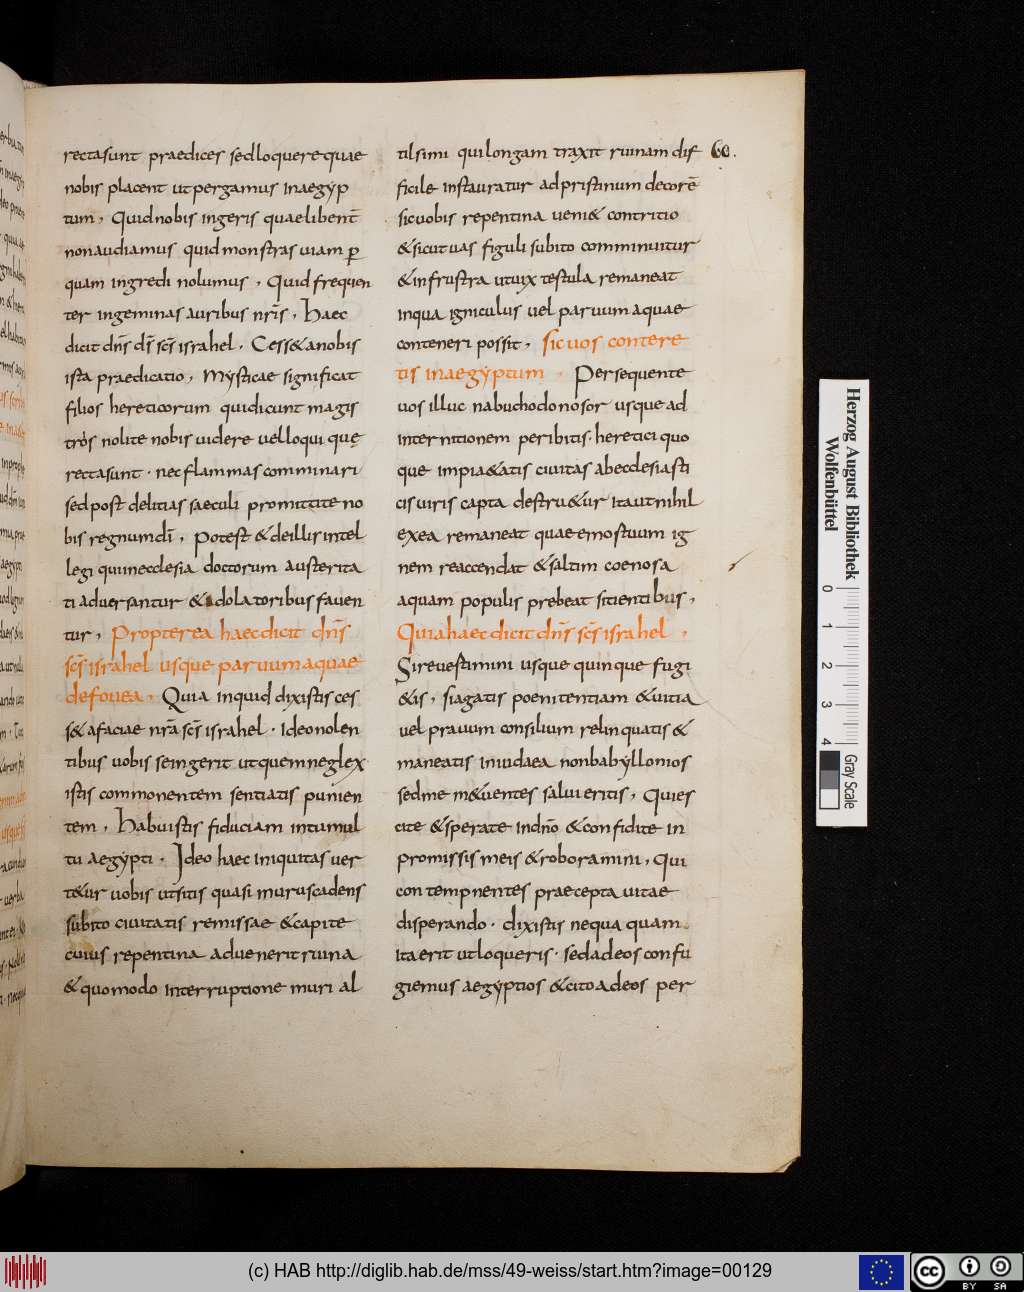 recta sunt praedices sed loquere quae
nobis placent ut pergamus in aegyp
tum, Quid nobis ingeris quae libent̄
non audiamus quid monstras uiam p̱
quam ingredi nolumus, Quid frequen
ter ingeminas auribus nr̄is, Haec
dicit dn̄s dī sc̄s israhel, Cess& a nobis
ista praedicatio, Mysticae significat
filios hereticorum qui dicunt magis
tros nolite nobis uidere uel loqui quę
recta sunt · nec flammas comminari
sed post delitias saeculi promittite no
bis regnum dī, Potest & de illis intel
legi qui in ecclesia doctorum austerita
ti aduersantur & adolatoribus fauen
tur, Propterea haec dicit dn̄s
sc̄s israhel usque paruum aquae
de fouea, Quia inquid dixistis ces
s& a faciae nr̄a sc̄s israhel · Ideo nolen
tibus uobis se ingerit ut quem neglex
istis commonentem sentiatis punien
tem, Habuistis fiduciam in tumul
tu aegypti · Ideo haec iniquitas uer
t&ur uobis ut sitis quasi murus cadens
subito ciuitatis remissae & capite
cuius repentina aduenerit ruina
& quomodo interruptione muri al
tissimi qui longam traxit ruinam dif
ficile instauratur ad pristinum decorē
sic uobis repentina ueni& contritio
& sicut uas figuli subito comminuitur
& in frustra ut uix testula remaneat
in qua igniculus uel paruum aquae
conteneri possit, sic uos contere
tis in aegyptum · Persequente
uos illuc nabuchodonosor usque ad
internitionem peribitis · heretici quo
que impi&atis ciuitas ab ecclesiasti
cis uiris capta destru&ur ita ut nihil
ex ea remaneat quae emostuum ig
nem reaccendat & saltim coenosa
aquam populis prebeat sitientibus,
Quia haec dicit dn̄s sc̄s israhel,
Si reuestimini usque quinque fugi
&is, si agatis poenitentiam & uitia
uel prauum consilium relinquatis &
maneatis in iudaea non babyllonios
sed me m&uentes salui eritis, Quies
cite & sperate in dn̄o & confidite in
promissis meis & roboramini, Qui
contempnentes praecepta uitae
disperando · dixistis nequaquam
ita erit ut loqueris · sed ad eos confu
giemus aegyptios & cito ad eos per
60.
Herzog August Bibliothek
Wolfenbüttel
0 1 2 3 4
Gray Scale
(c) HAB http://diglib.hab.de/mss/49-weiss/start.htm?image=00129
cc BY SA